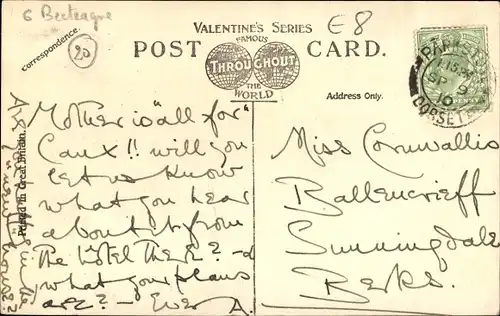 6 Bretagne
20
E8
VALENTINE'S SERIES
FAMOUS
POST CARD.
THROUGHOUT
THE
WORLD
Correspondence.
Address Only.
Printed in Great Britain.
PARKSTONE
SP 9
10
DORSET
Mother is "all for"
Caux!! will you
let us know
what you hear
about it from
the hotel there? - d
what your plans
are? - Ever A.
Miss Cornwallis
Ballencrieff
Sunningdale
Berks.